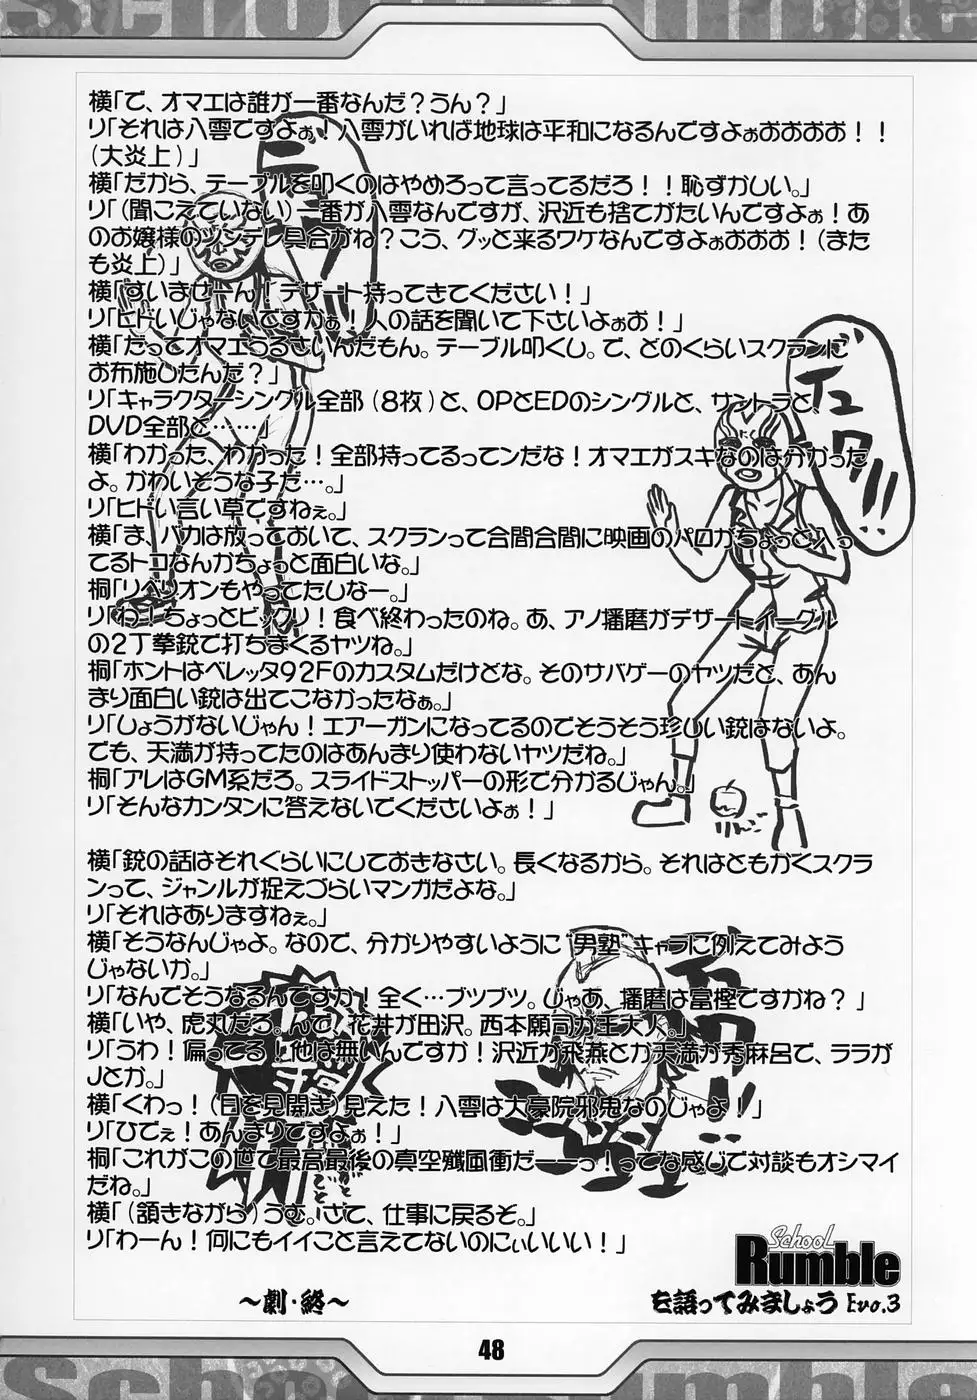 横「で、オマエは誰が一番なんだ？うん？」
リ「それは八雲ですよぉ！八雲がいれば地球は平和になるんですよぉおおおお！！
（大炎上）」
横「だから、テーブルを叩くのはやめろって言ってるだろ！！恥ずかしい。」
リ「（聞こえていない）一番が八雲なんですが、沢近も捨てがたいんですよぉ！あ
のお嬢様のツンデレ具合がね？こう、グッと来るワケなんですよぉおおお！（また
も炎上）」
横「すいませーん！デザート持ってきてください！」
リ「ヒドいじゃないですかぁ！人の話を聞いて下さいよぉお！」
横「だってオマエうるさいんだもん。テーブル叩くし。で、どのくらいスクランに
お布施したんだ？」
リ「キャラクターシングル全部（8枚）と、OPとEDのシングルと、サントラと、
DVD全部と……」
横「わかった、わかった！全部持ってるってンだな！オマエがスキなのは分かった
よ。かわいそうな子だ…。」
リ「ヒドい言い草ですねぇ。」
横「ま、バカは放っておいて、スクランって合間合間に映画のパロがちょっと入っ
てるトコなんかちょっと面白いな。」
桐「リベリオンもやってたしなー。」
リ「わ！ちょっとビックリ！食べ終わったのね。あ、アノ播磨がデザートイーグル
の2丁拳銃で打ちまくるヤツね。」
桐「ホントはベレッタ92Fのカスタムだけどな。そのサバゲーのヤツだと、あん
まり面白い銃は出てこなかったなぁ。」
リ「しょうがないじゃん！エアーガンになってるのでそうそう珍しい銃はないよ。
でも、天満が持ってたのはあんまり使わないヤツだね。」
桐「アレはGM系だろ。スライドストッパーの形で分かるじゃん。」
リ「そんなカンタンに答えないでくださいよぉ！」
横「銃の話はそれぐらいにしておきなさい。長くなるから。それはともかくスクラ
ンって、ジャンルが捉えづらいマンガだよな。」
リ「それはありますねぇ。」
横「そうなんじゃよ。なので、分かりやすいように“男塾”キャラに例えてみよう
じゃないか。」
リ「なんでそうなるんですか！全く…ブツブツ。じゃあ、播磨は富樫ですかね？」
横「いや、虎丸だろ。んで、花井が田沢。西本願司が王大人。」
リ「うわ！偏ってる！他は無いんですか！沢近が飛燕とか天満が秀麻呂で、ララが
Jとか。」
横「くわっ！（目を見開き）見えた！八雲は大豪院邪鬼なのじゃよ！」
リ「ひでぇ！あんまりですよぉ！」
桐「これがこの世で最高最後の真空殲風衝だーーっ！ってな感じで対談もオシマイ
だね。」
横「（頷きながら）うむ。さて、仕事に戻るぞ。」
リ「わーん！何にもイイこと言えてないのにぃいいい！」
りんご
〜劇・終〜
School
Rumble
を語ってみましょう Evo.3
48